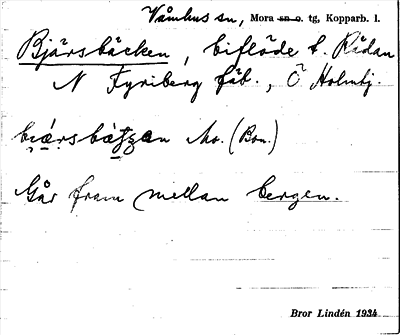 Våmhus sn, Mora sn o. tg, Kopparb. l.
Bjärsbäcken, biflöde t. Rådan
N Fyriberg fäb., Ö Holmbj.
Mo. (Bon.)
Går fram mellan bergen.
Bror Lindén 1934